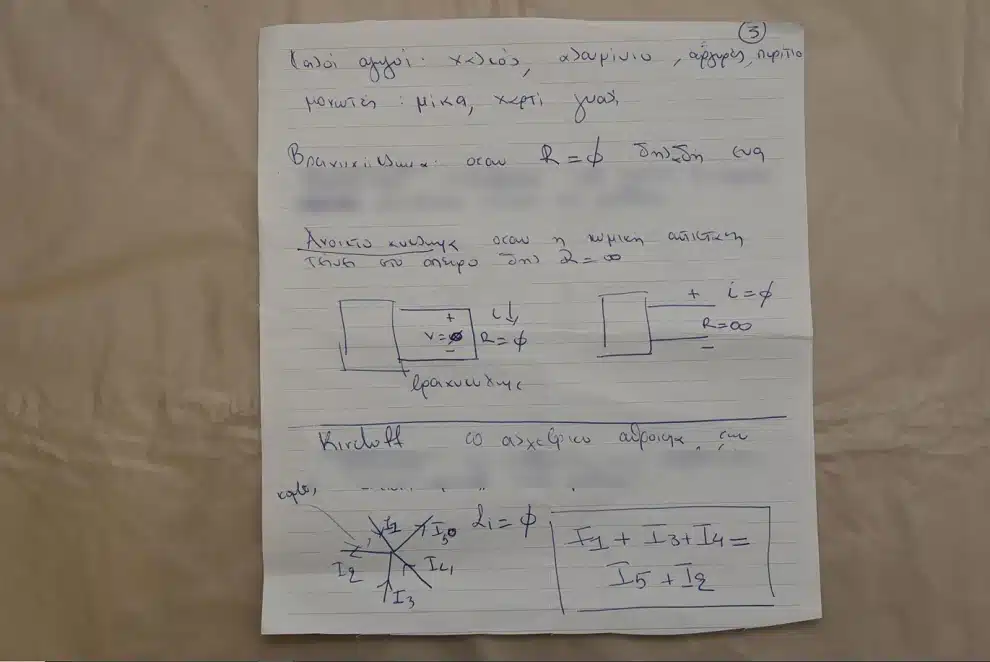 3
Καλοί αγωγοί: χαλκός, αλουμίνιο, άργυρος, πυρίτιο
μονωτές: μίκα, χαρτί γυαλί
Βραχυκύκλωμα: οταν R = ϕ δηλαδή ενα
Ανοικτο κυκλωμα οταν η ωμική αντισταση
τείνει στο απειρο δηλ R = ∞
+ i
V = ϕ R = ϕ
-
βραχυκυκλωμα
+ i = ϕ
R = ∞
-
Kirchoff το αλγεβρικο αθροισμα των
κομβος
I1 I5 Σi = ϕ
I2 I4
I3
I1 + I3 + I4 =
I5 + I2